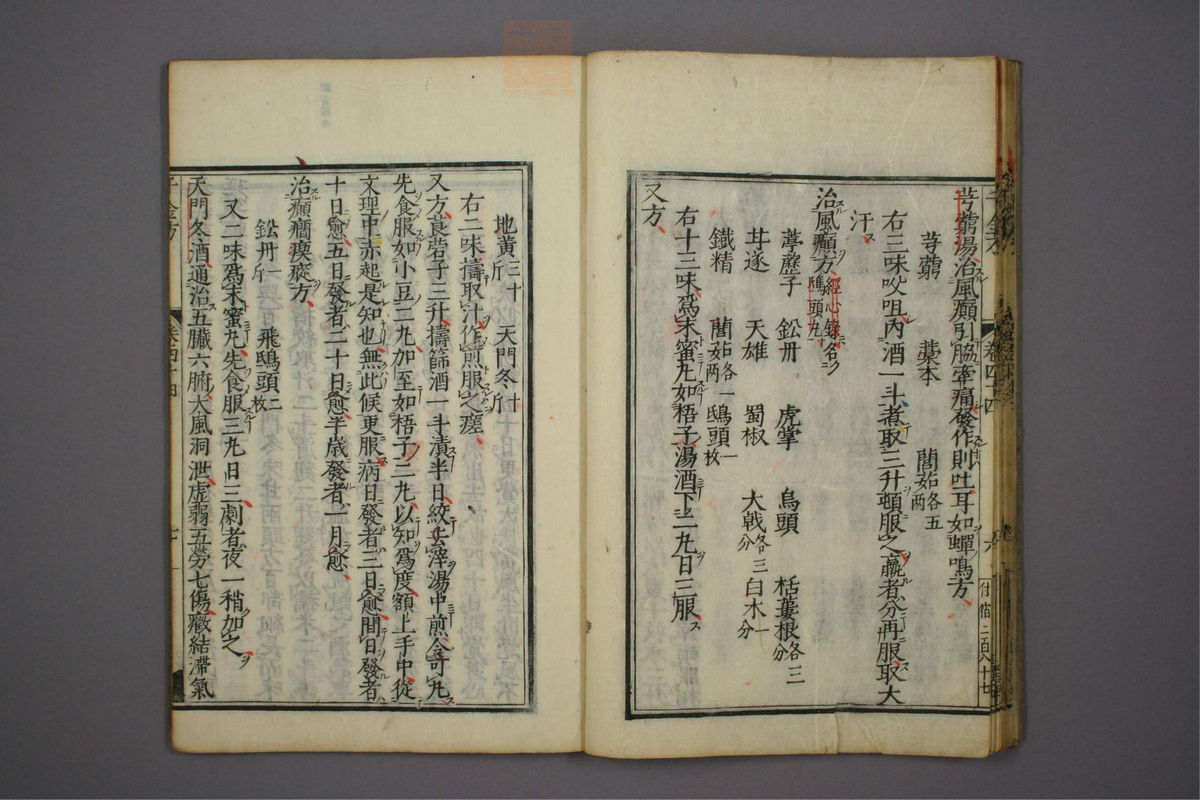 芎藭湯治風癲引脇牽痛發作則吐耳如蟬鳴方
芎藭 藁本 䕡茹各五兩
右三味㕮咀內酒一斗煮取三升頓服之羸者分再服取大
汗
治風癲方經心錄名鴟頭丸
葶藶子 鈆丹 虎掌 烏頭 栝蔞根各三分
甘遂 天雄 蜀椒 大戟各三分 白朮一分
鐵精 䕡茹各一兩 鴟頭一枚
右十三味爲末蜜丸如梧子湯酒下二丸日三服
又方
地黃三十斤 天門冬十斤
右二味擣取汁作煎服之瘥
又方莨菪子三升擣篩酒一斗漬半日絞去滓湯中煎令可丸
先食服如小豆二丸加至如梧子二丸以知爲度額上手中從
文理中赤起是知也無此候更服病日發者三日愈間日發者
十日愈五日發者二十日愈半歲發者一月愈
治癲癎瘈瘲方
鈆丹一斤 飛鴟頭二枚
又二味爲末蜜丸先食服三丸日三劇者夜一稍加之
天門冬酒通治五臟六腑大風洞泄虛弱五勞七傷癥結滯氣
卷四十四
七
千金方
卷四十四
六